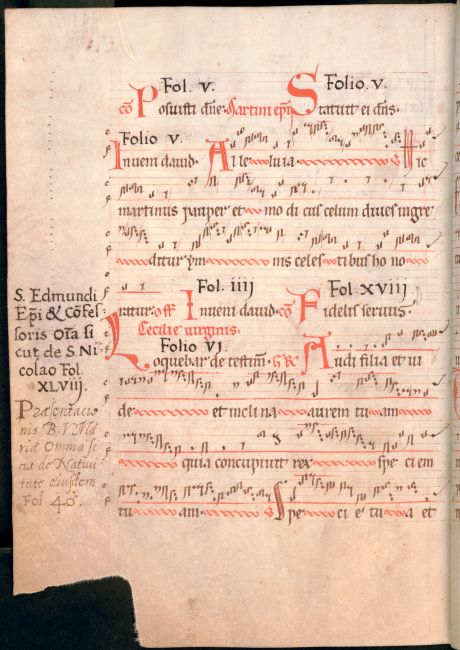 Fol. V. Folio. V.
cō Posuisti dn̄e. Martini ep̄i Statuit ei dn̄s.
Folio V
Inveni dauid. Alleluia. Hic
martinus pauper et mo di cus celum diues ingre
ditur ẏm nis celes tibus ho no
Fol. IIIJ Fol. XVIIJ
ratur. off Inveni dauid. cō Fidelis seruus.
Cecilie uirginis.
Folio VI.
Loquebar de testim̄. GR Audi filia et ui
de et inclina aurem tu am
quia concupiuit rex spe ci em
tu am. Spe ci e tu a et
S. Edmundi
Ep̄i & Cōfes-
soris Oīa si
cut de S. Ni
colao Fol.
XLVIIJ.
Præsentatio
nis B. V. Ma
riæ Omnia si
cut de Natiui
tate eiusdem
Fol. 40.